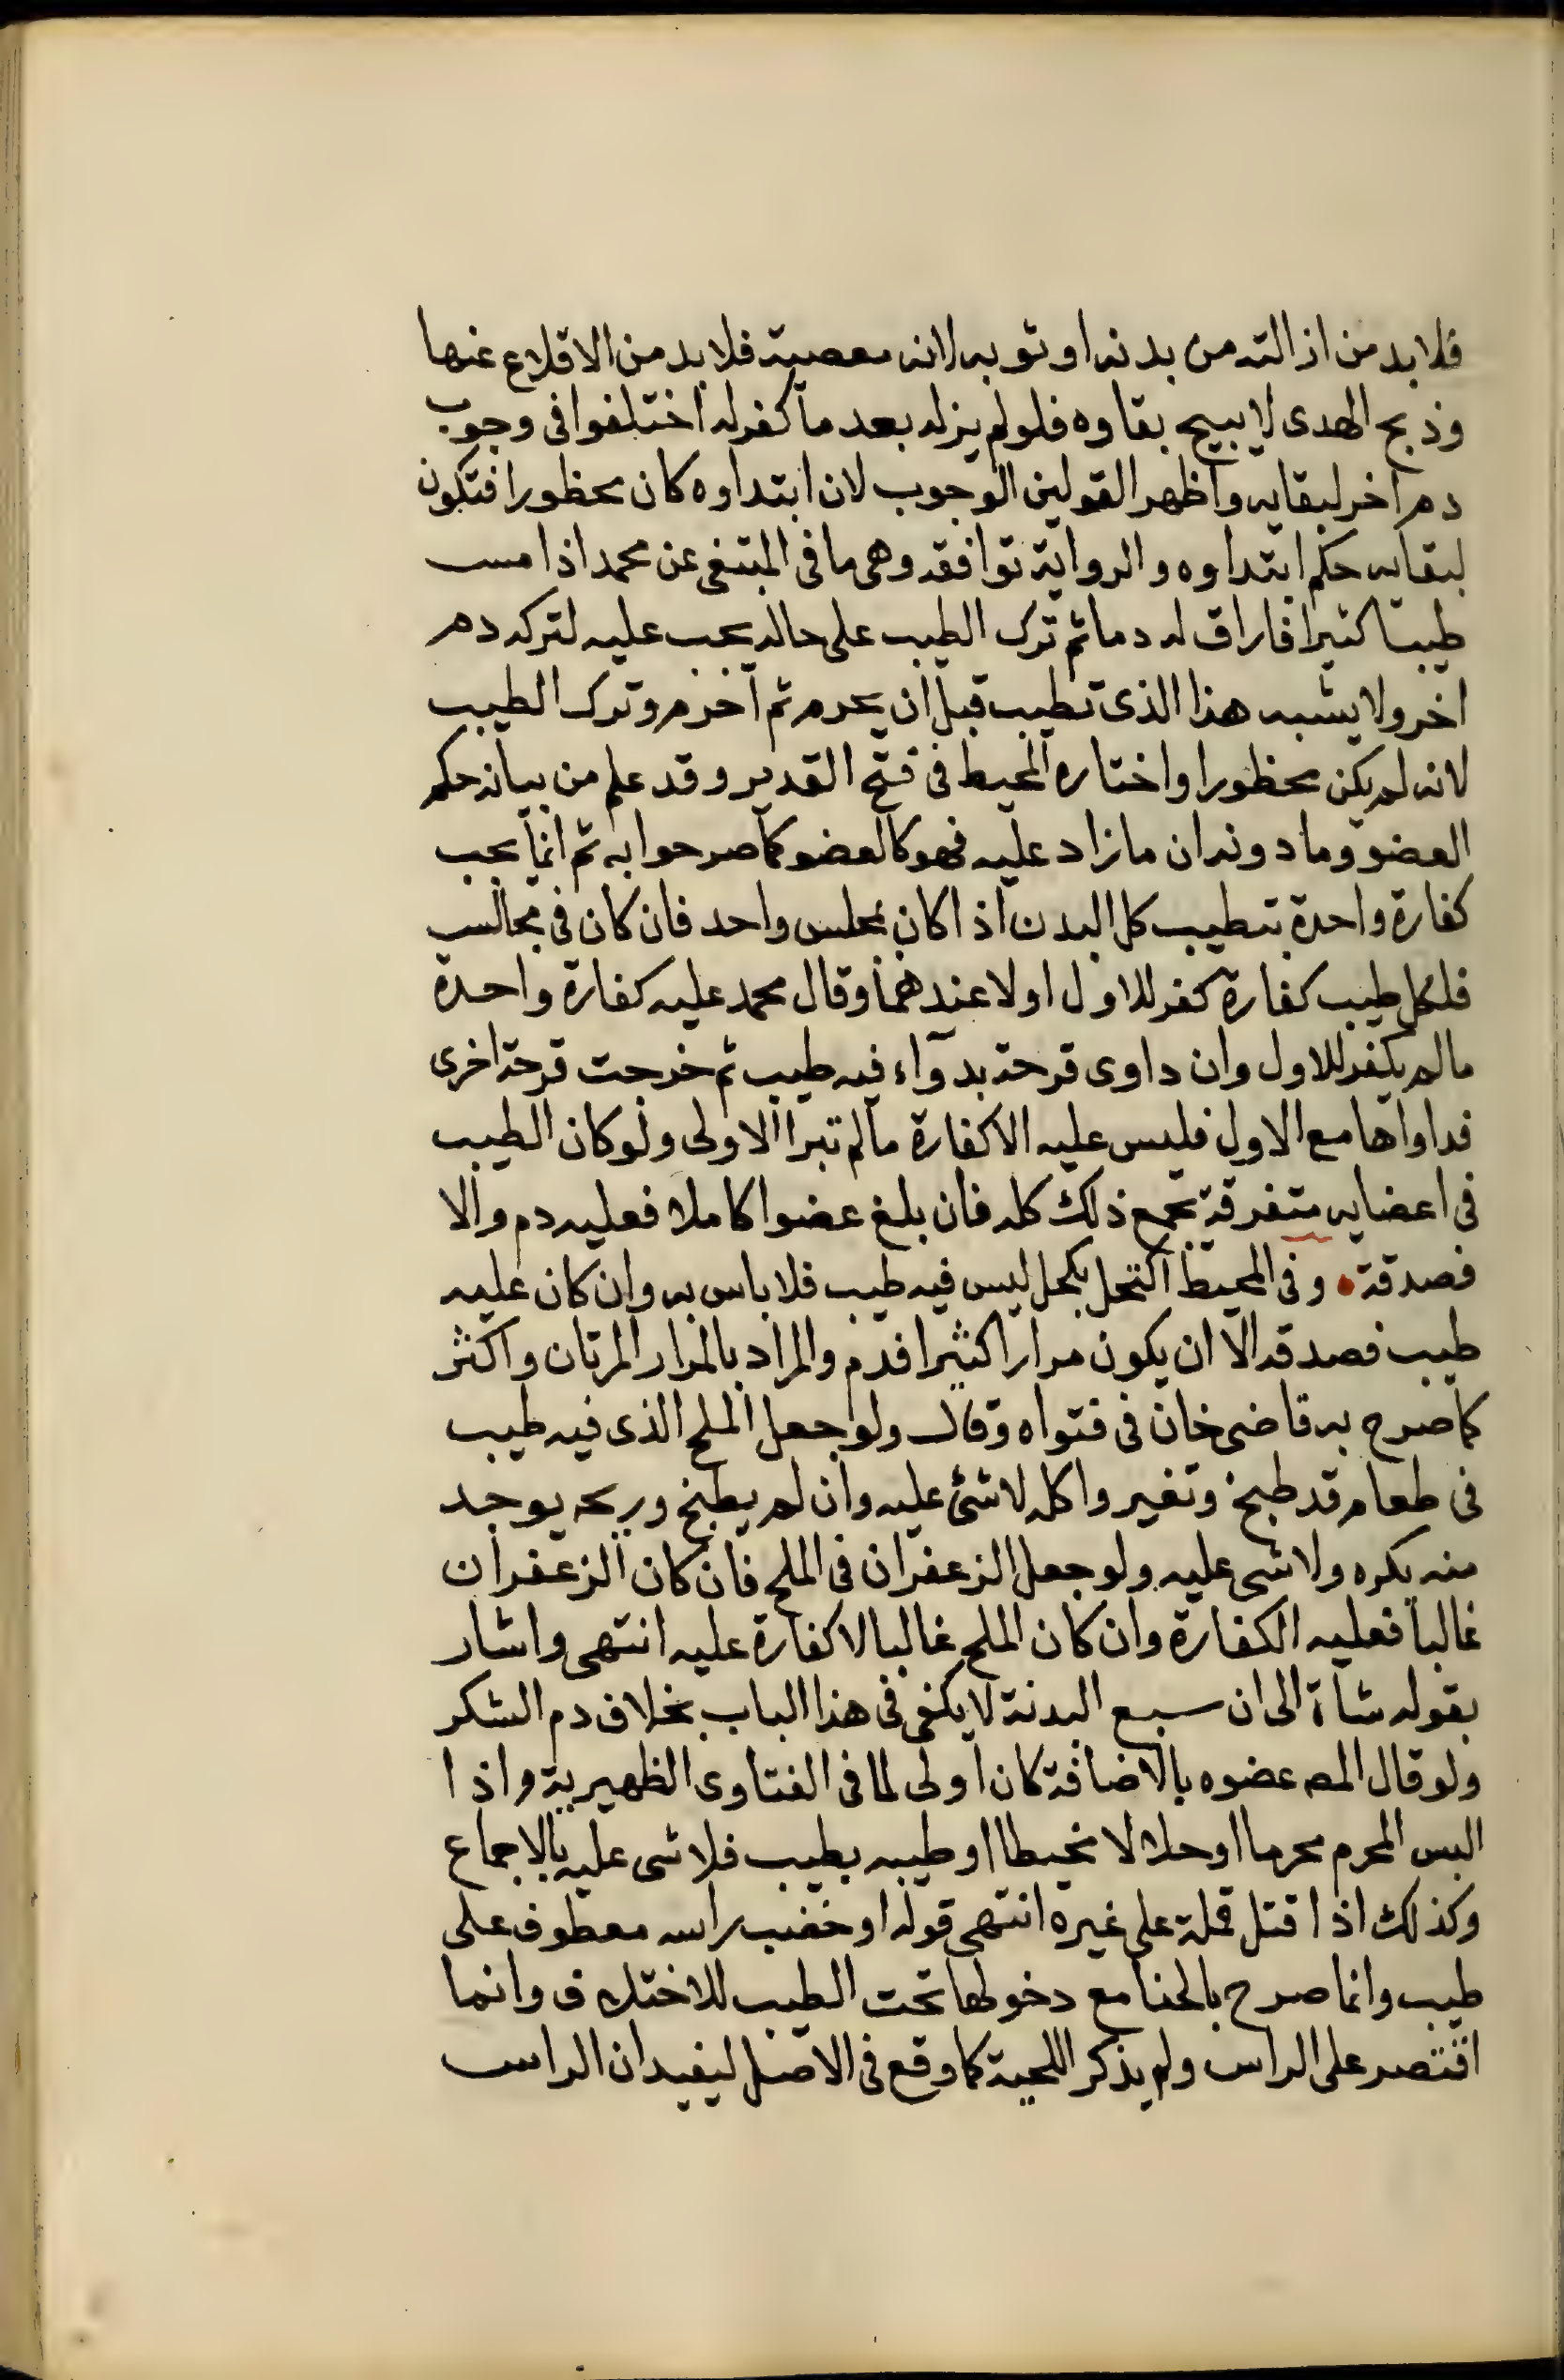 فلابد من ازالته من بدنه او ثوبه لانه معصية فلابد من الاقلاع عنها
وذبح الهدى لا يبيح بقاوه فلو لم يزله بعد ما كفر له اختلفوا فى وجوب
دم اخر لبقايه واظهر القولين الوجوب لان ابتداوه كان محظورا فتكون
لبقايه حكم ابتداوه والرواية توافقه وهى ما فى المبتغى عن محمد اذا مس
طيبا كثيرا فاراق له دما ثم ترك الطيب على حاله يجب عليه لتركه دم
اخر ولا يشبه هذا الذى تطيب قبل ان يحرم ثم احرم وترك الطيب
لانه لم يكن محظورا واختاره المحيط فى فتح القدير وقد علم من بيانه حكم
العضو وما دونه ان ما زاد عليه فهو كالعضو كما صرحوا به ثم انما يجب
كفارة واحدة بتطيب كل البدن اذا كان بمجلس واحد فان كان فى مجالس
فلكل طيب كفارة كفر للاول اولا عندهما وقال محمد عليه كفارة واحدة
مالم يكفر للاول وان داوى قرحة بدوآء فيه طيب ثم خرجت قرحة اخرى
فداواها مع الاول فليس عليه الا كفارة مالم تبرا الاولى ولو كان الطيب
فى اعضايه متفرقة تجمع ذلك كله فان بلغ عضوا كاملا فعليه دم والا
فصدقة وفى المحيط اكتحل بكحل ليس فيه طيب فلا باس به وان كان عليه
طيب فصدقه الا ان يكون مرارا كثيرا فدم والمراد بالمرار المرتان واكثر
كما صرح به قاضى خان فى فتواه وقال ولو جعل الملح الذى فيه طيب
فى طعام قد طبخ وتغير واكله لا شئ عليه وان لم يطبخ وريحه يوجد
منه يكره ولا شى عليه ولو جعل الزعفران فى الملح فان كان الزعفران
غالبا فعليه الكفارة وان كان الملح غالبا لا كفارة عليه انتهى واشار
بقوله شاة الى ان سبع البدنة لا يكفى فى هذا الباب بخلاف دم الشكر
ولو قال المص عضوه بالاضافة كان اولى لما فى الفتاوى الظهيرية واذا
البس المحرم محرما او حلالا مخيطا او طيبه بطيب فلا شى عليه بالاجماع
وكذلك اذا قتل قملة على غيره انتهى قوله او خضب راسه معطوف على
طيب وانما صرح بالحنا مع دخولها تحت الطيب للاختلاف وانما
اقتصر على الراس ولم يذكر اللحية كما وقع فى الاصل ليفيد ان الراس